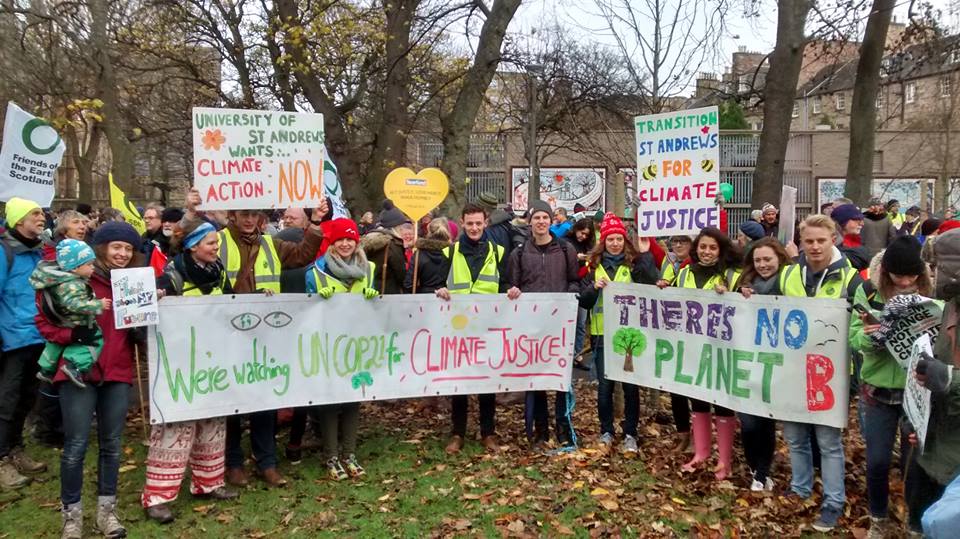 Friends of
the Earth
Scotland
UNIVERSITY OF
ST ANDREWS
WANTS...
CLIMATE
ACTION: NOW!
TRANSITION
ST ANDREWS
FOR
CLIMATE
JUSTICE
We're watching UN COP21 for CLIMATE JUSTICE!
THERES NO
PLANET B
CHANGE